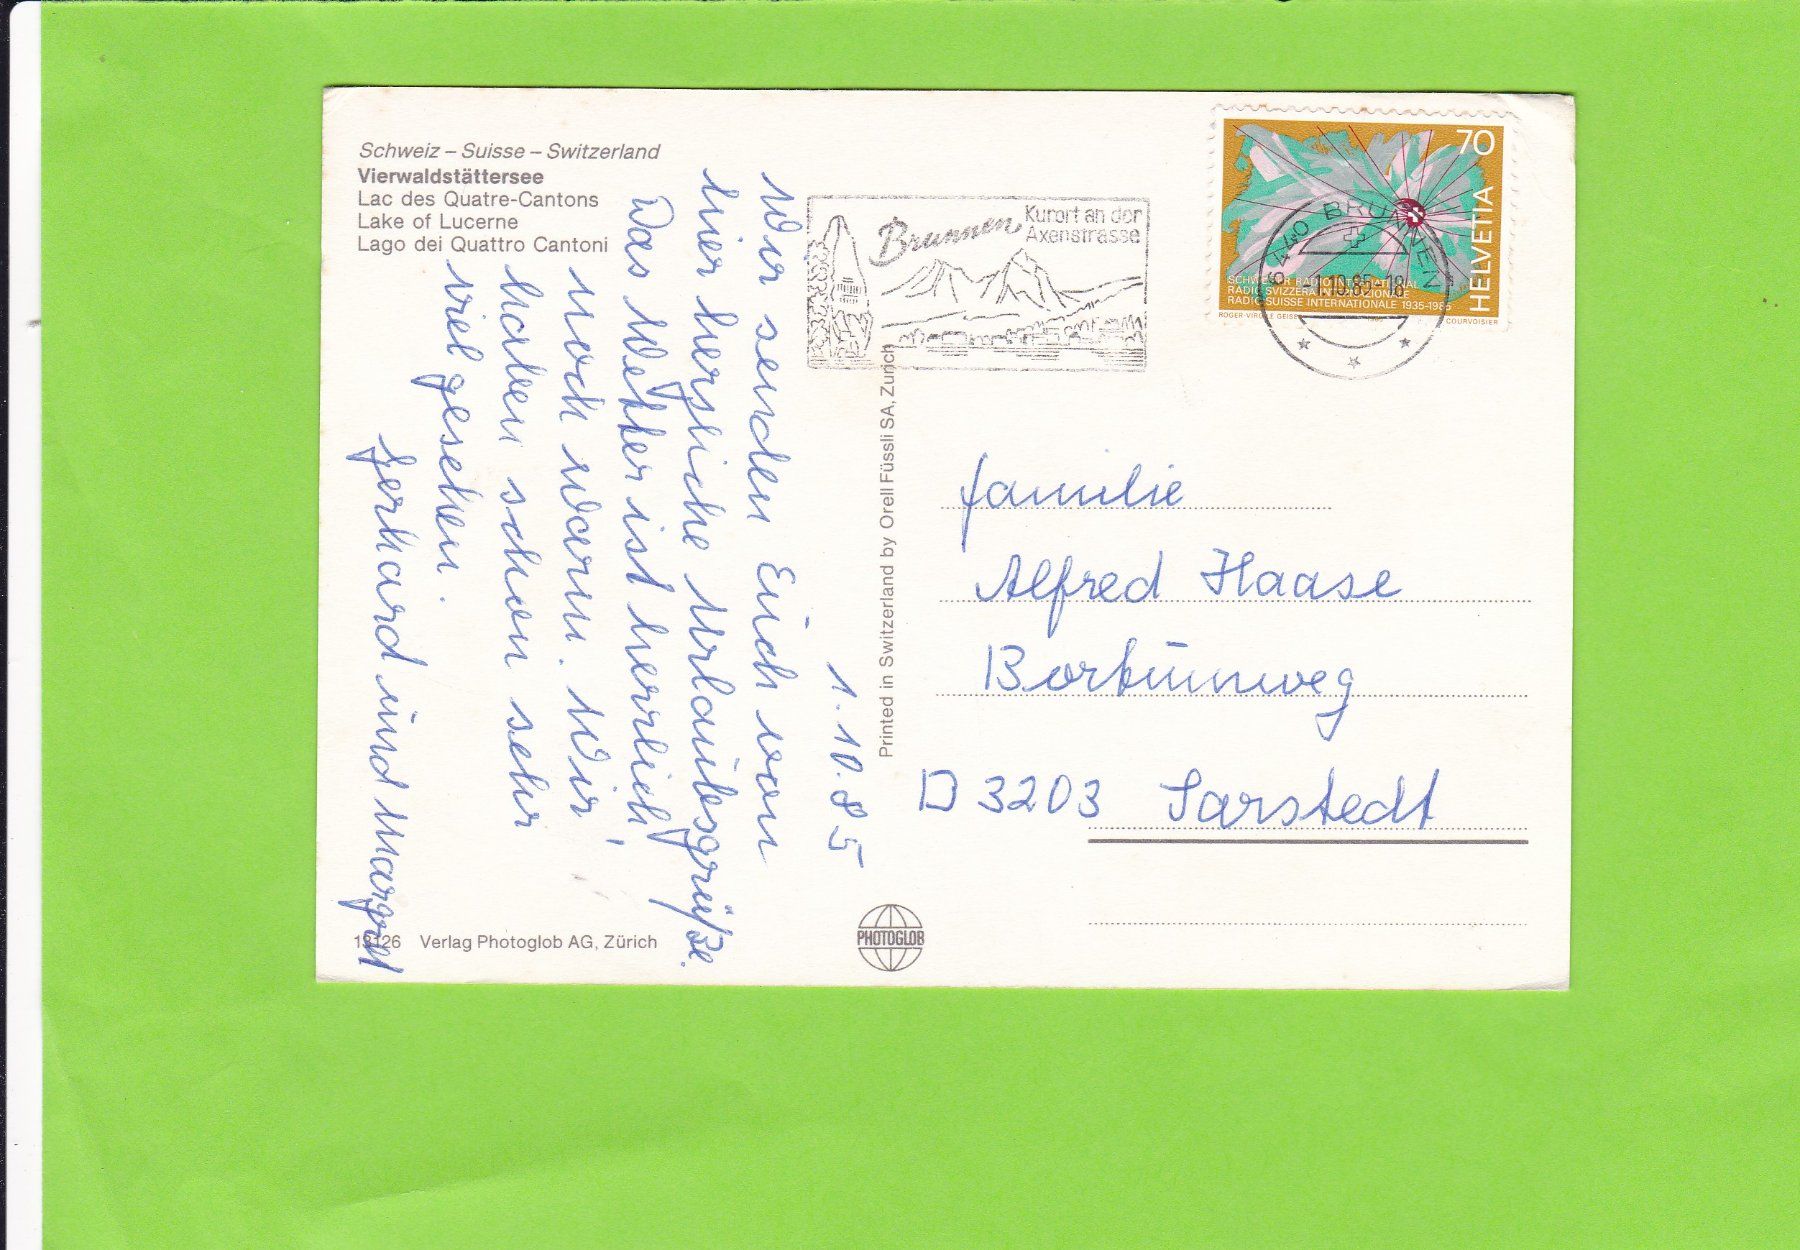 Schweiz – Suisse – Switzerland
Vierwaldstättersee
Lac des Quatre-Cantons
Lake of Lucerne
Lago dei Quattro Cantoni
1.10.85
Wir senden Euch von
hier herzliche Urlaubsgrüße.
Das Wetter ist herrlich
noch warm. Wir
haben schon sehr
viel gesehen.
Gerhard und Margret
13126 Verlag Photoglob AG, Zürich
PHOTOGLOB
Printed in Switzerland by Orell Füssli SA, Zurich
Brunnen
Kurort an der
Axenstrasse
70
HELVETIA
SCHWEIZER RADIO INTERNATIONAL
RADIO SVIZZERA INTERNAZIONALE
RADIO SUISSE INTERNATIONALE 1935-1985
COURVOISIER
6440 BRUNNEN
1.10.85-18
Familie
Alfred Haase
Borkumweg
D 3203 Sarstedt